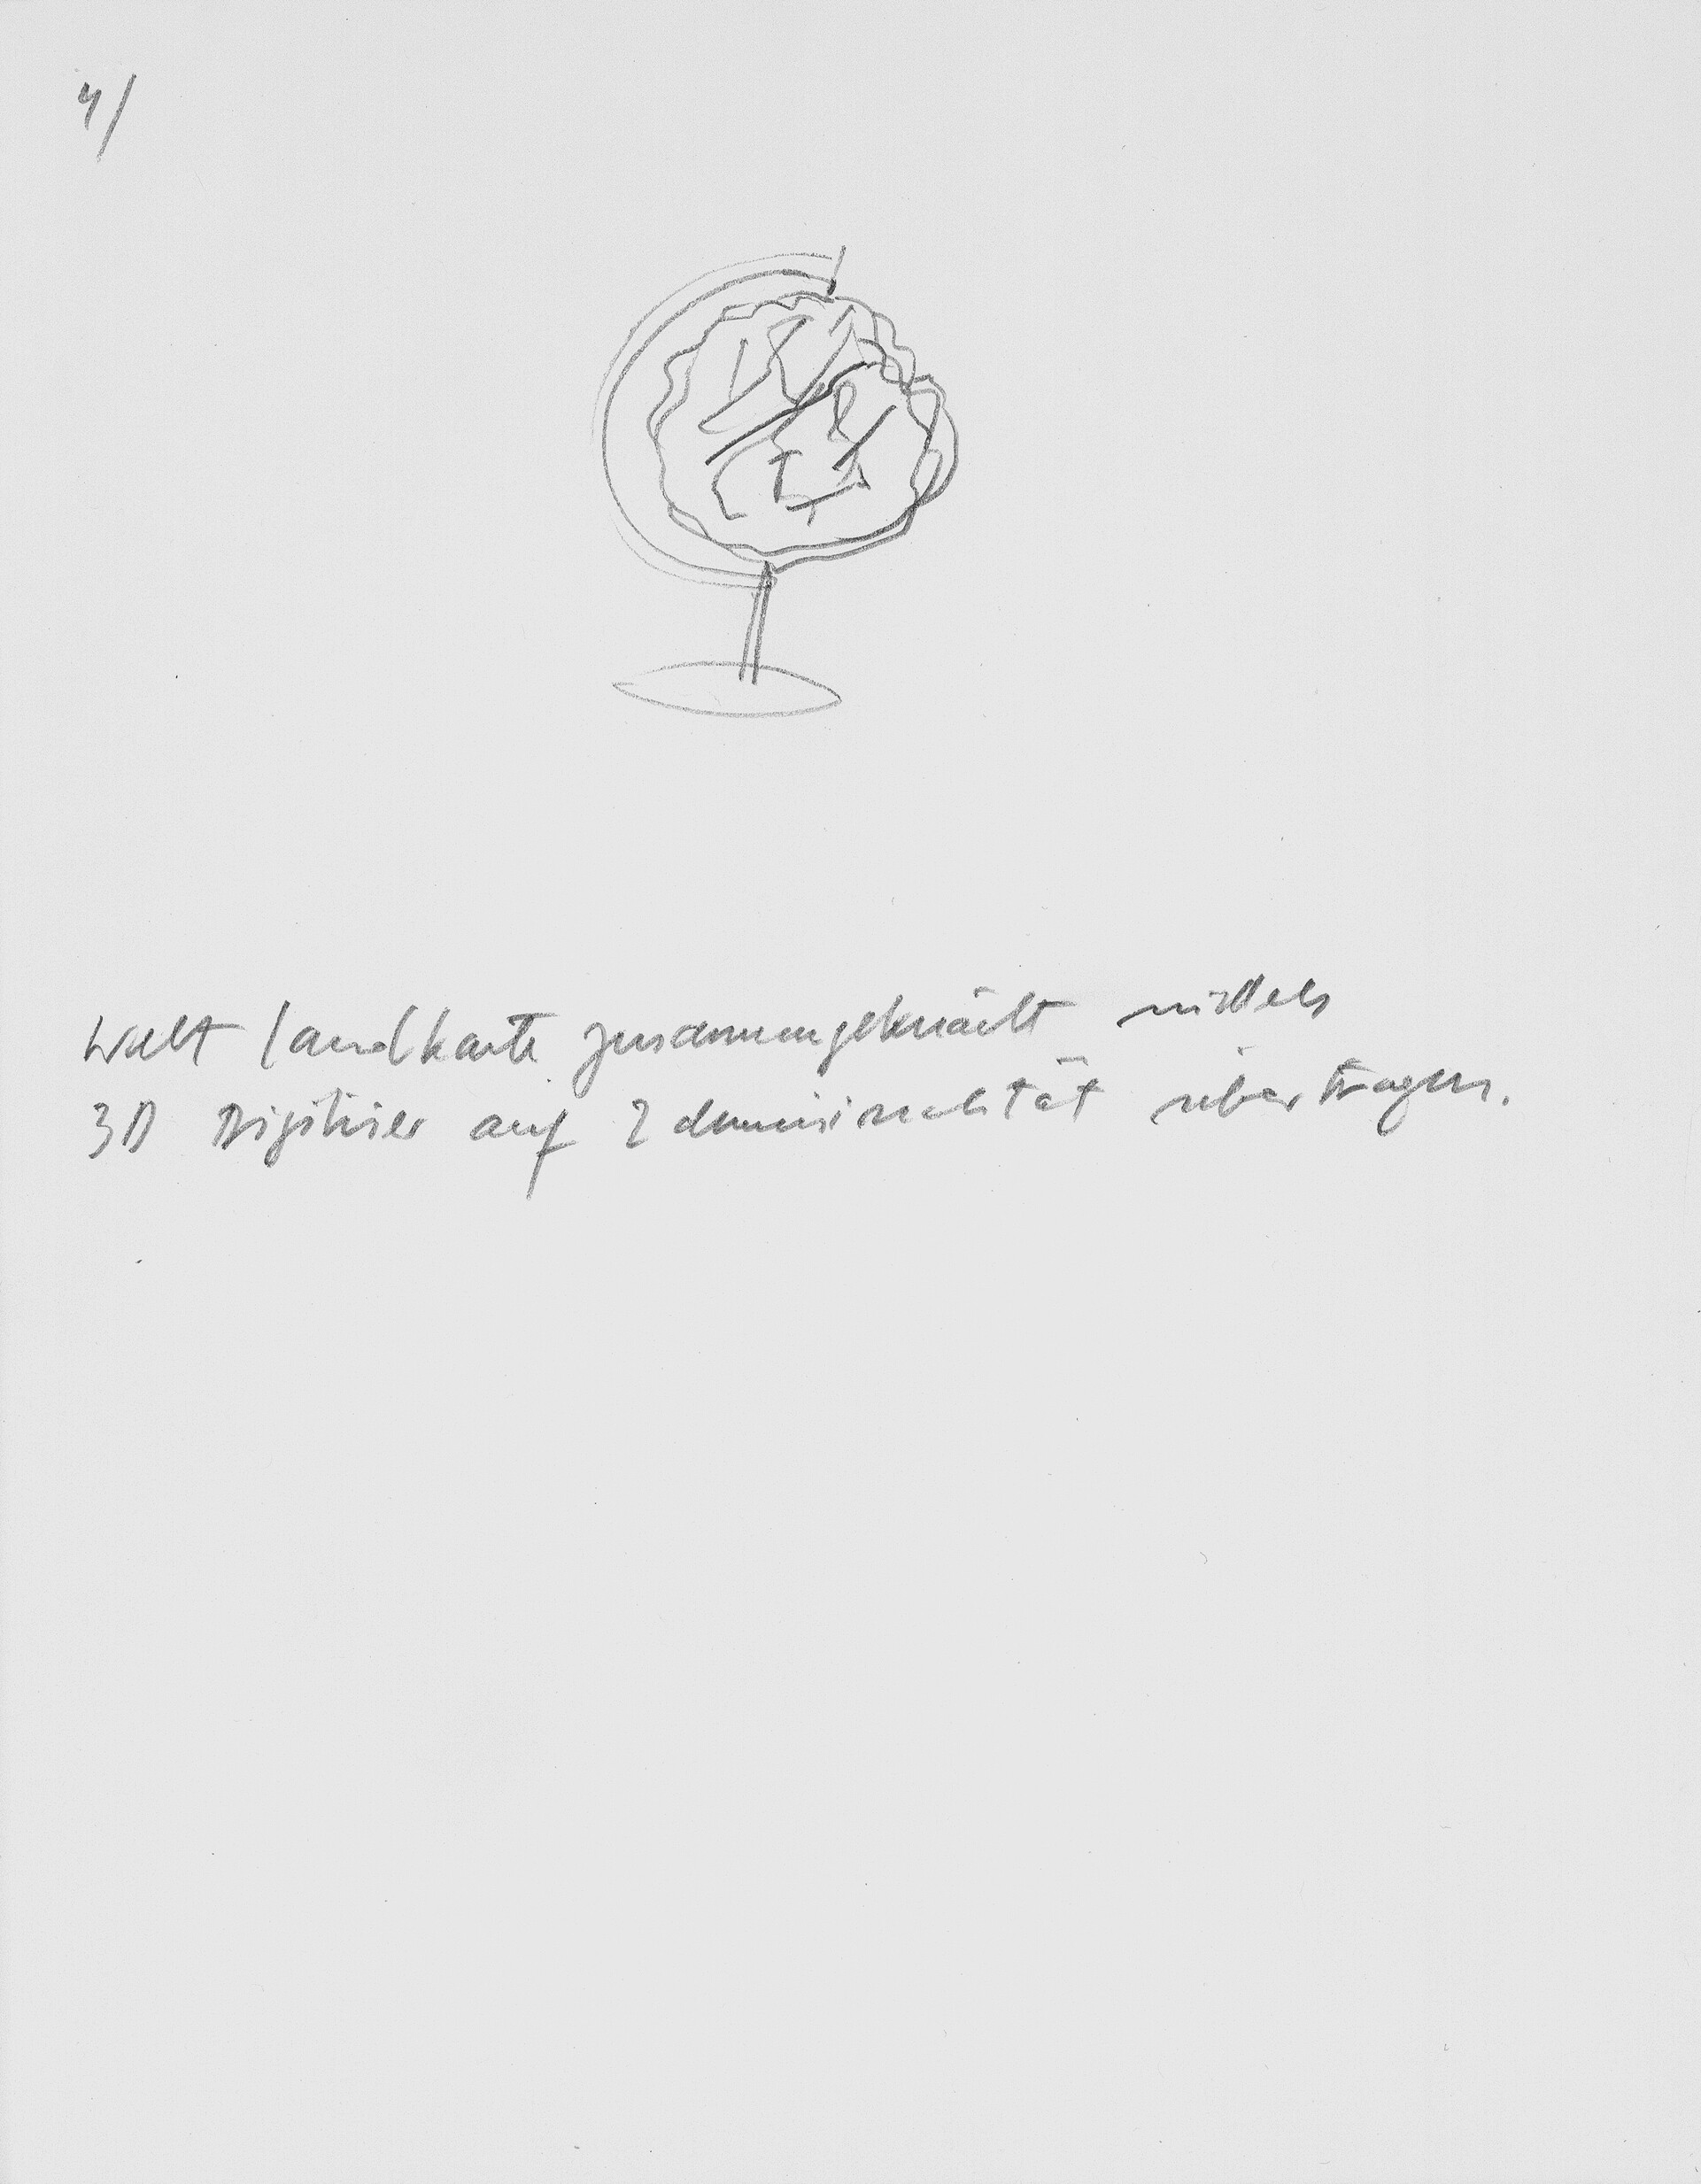 4/
Welt landkarte zusammengeknäult mittels
3D Digitizier auf 2 dimensionalität übertragen.